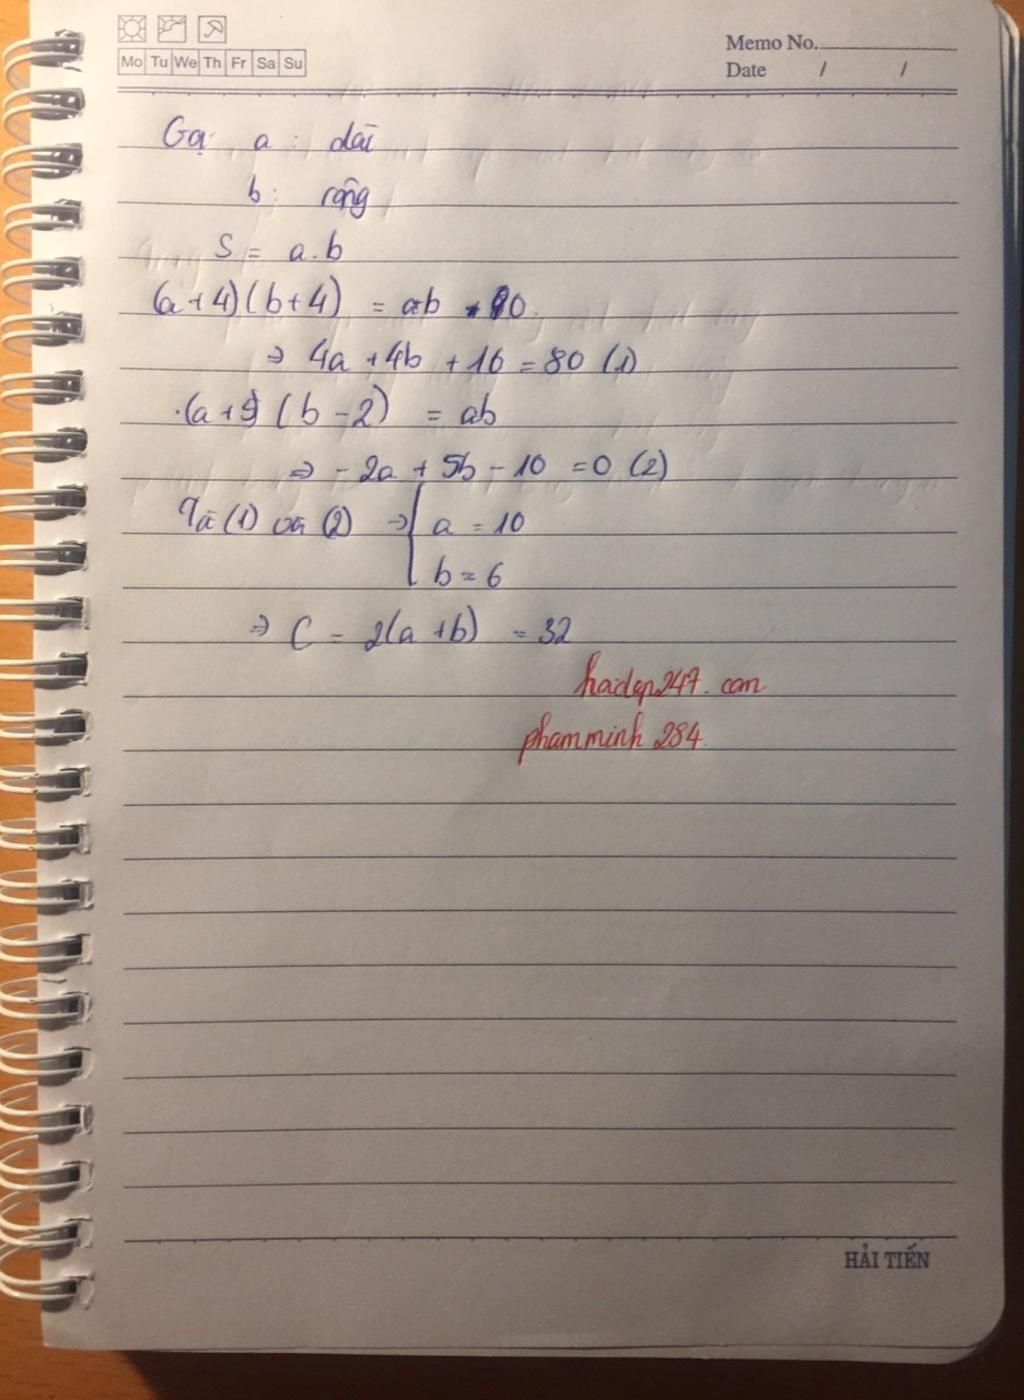 Mo Tu We Th Fr Sa Su
Memo No.
Date / /
Gọi a : dài
b : rộng
S = a.b
(a+4)(b+4) = ab + 80
⇒ 4a + 4b + 16 = 80 (1)
(a+5)(b-2) = ab
⇒ -2a + 5b - 10 = 0 (2)
Từ (1) và (2) → { a = 10
b = 6
⇒ C = 2(a+b) = 32
hoidap247.com
phamminh284
HẢI TIẾN